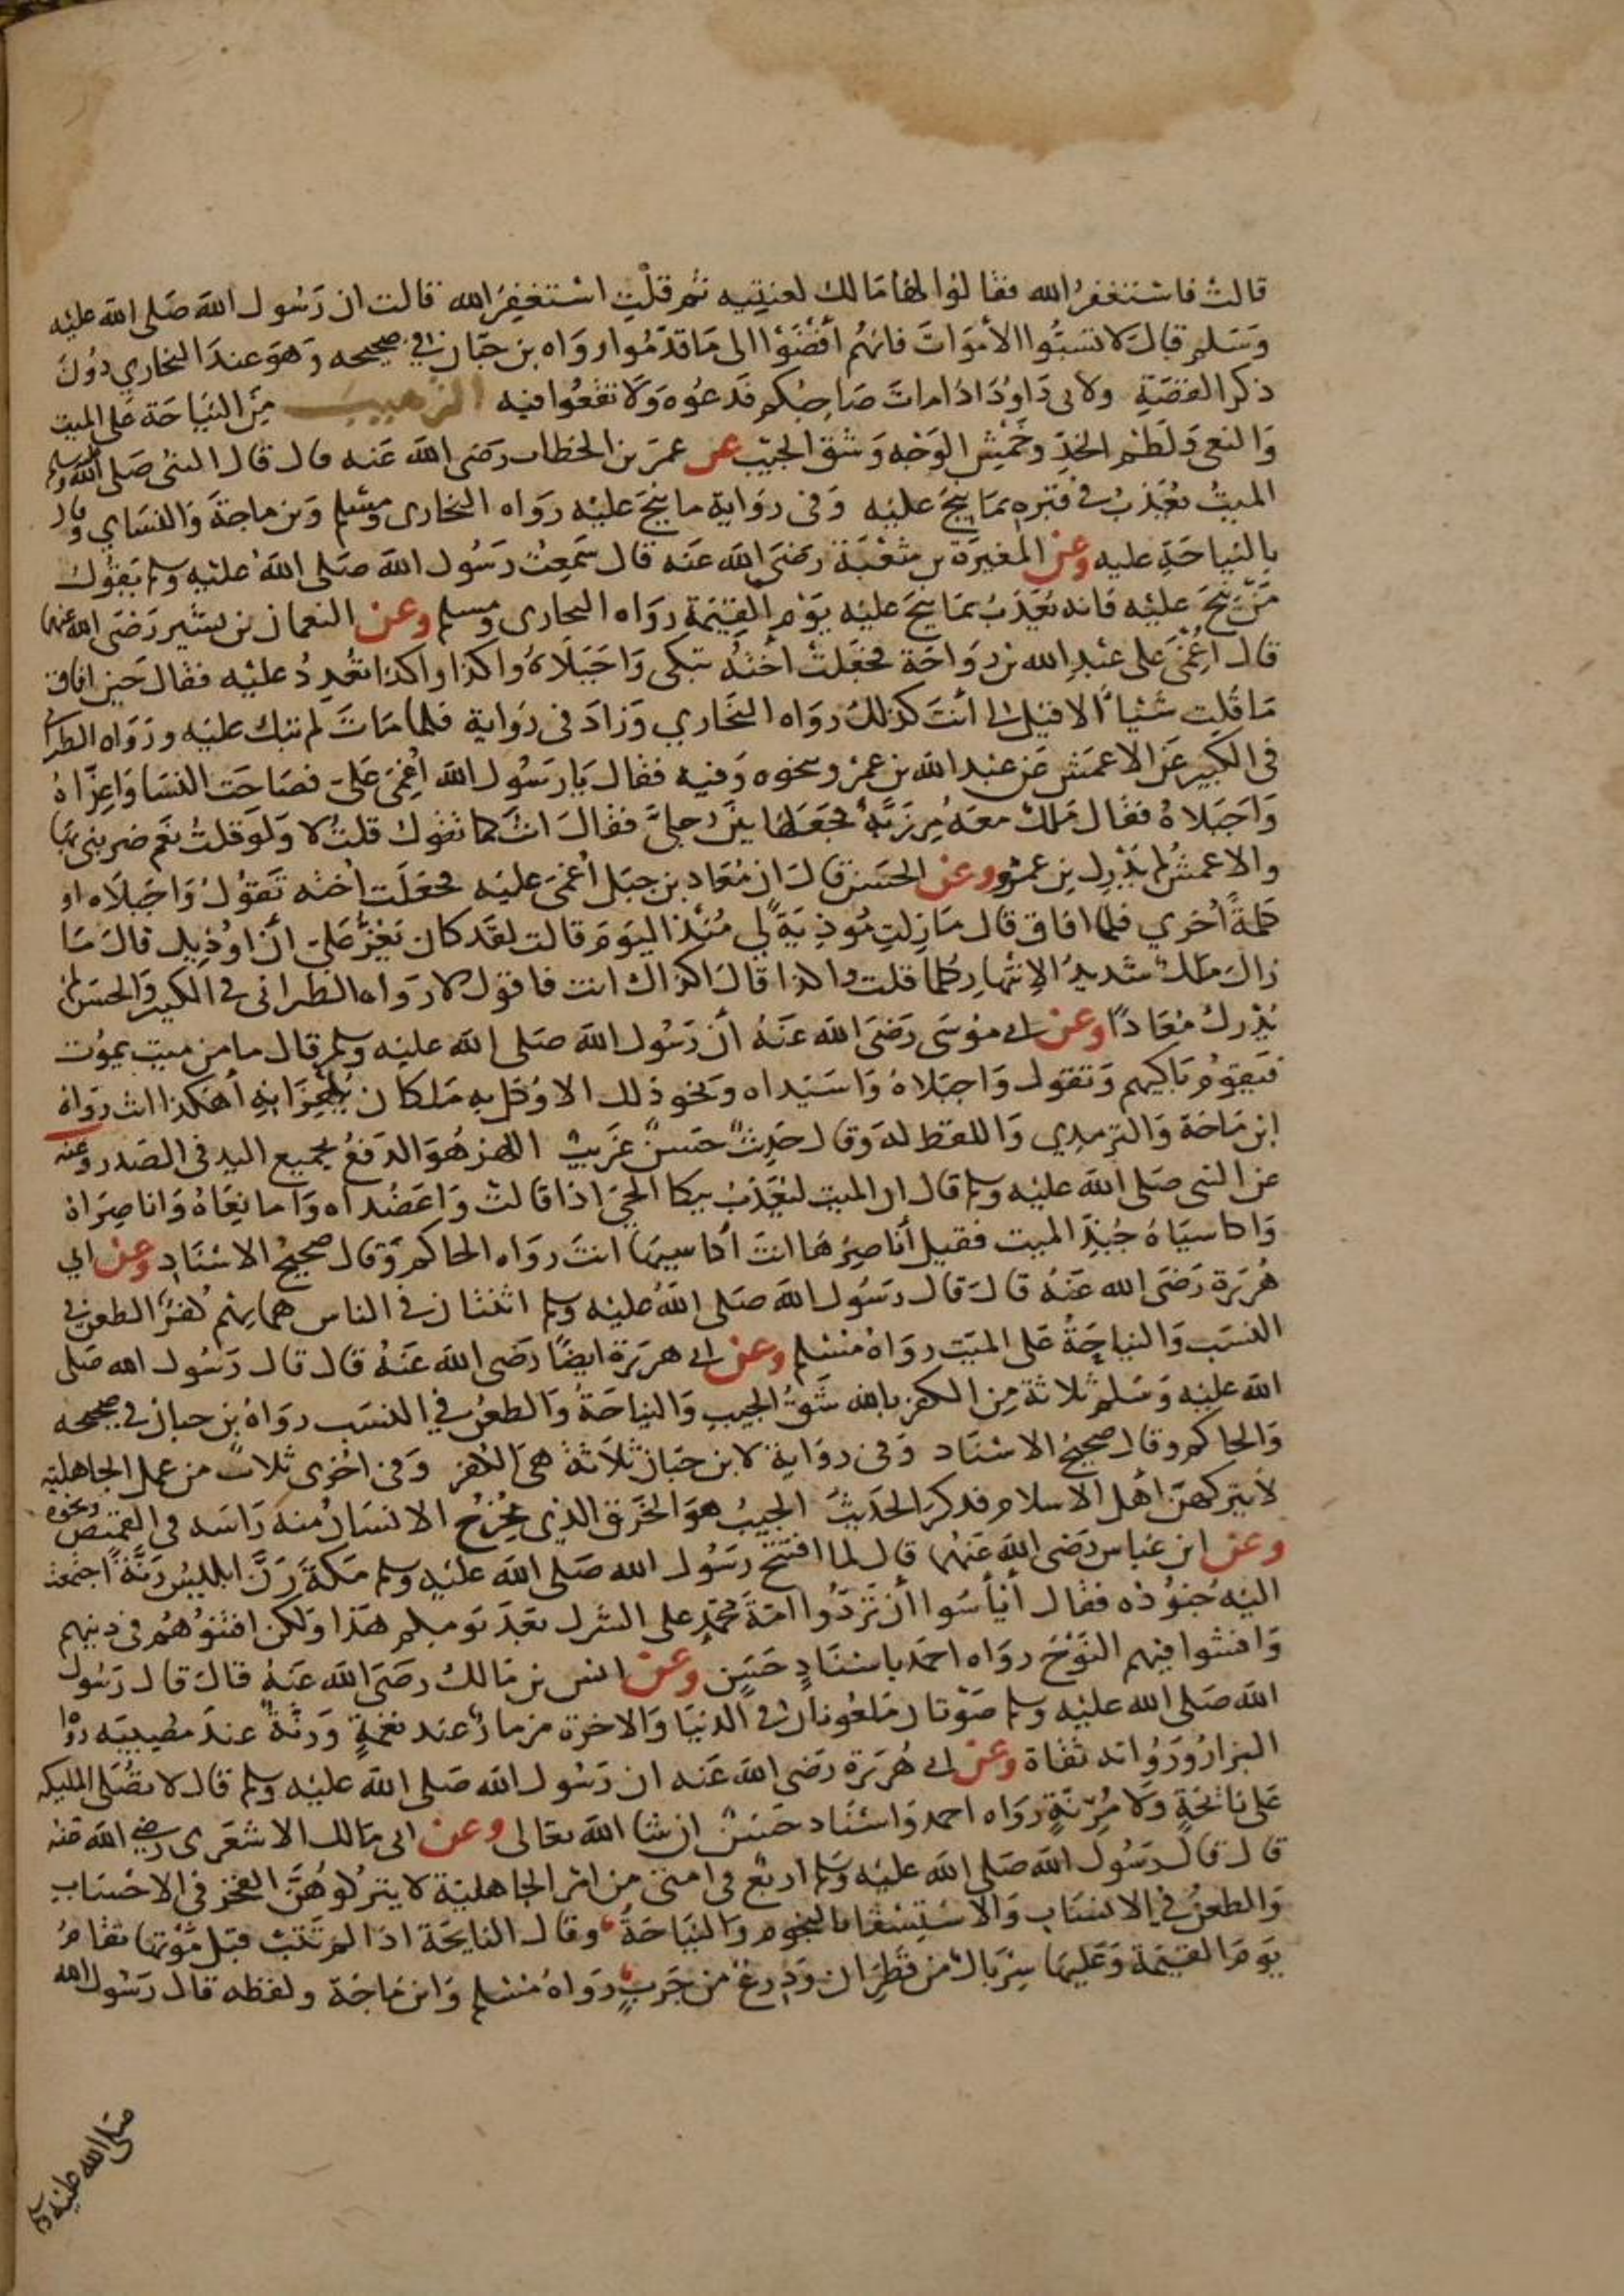 قالت فاستغفر الله فقالوا لها مالك لعنتيه ثم قلت استغفر الله قالت ان رسول الله صلى الله عليه
وسلم قال لا تسبوا الأموات فانهم أفضوا الى ما قدموا رواه بن حبان في صحيحه وهو عند البخاري دون
ذكر القصة ولابى داود اذا مات صاحبكم فدعوه ولا تقعوا فيه الترهيب من النياحة على الميت
والنعى ولطم الخد وخمش الوجه وشق الجيب عن عمر بن الخطاب رضى الله عنه قال قال النبى صلى الله عليه وسلم
الميت يعذب في قبره بما نيح عليه وفى رواية ما نيح عليه رواه البخارى ومسلم وبن ماجة والنساي وقال
بالنياحة عليه وعن المغيرة بن شعبة رضى الله عنه قال سمعت رسول الله صلى الله عليه وسلم يقول
من نيح عليه فانه يعذب بما نيح عليه يوم القيمة رواه البخارى ومسلم وعن النعمان بن بشير رضى الله عنهما
قال اغمى على عبد الله بن رواحة فجعلت أخته تبكى واجبلاه واكذا واكذا تعدد عليه فقال حين افاق
ما قلت شئيا الا قيل لى أنت كذلك رواه البخاري وزاد فى رواية فلما مات لم تبك عليه ورواه الطبرا
فى الكبير عن الاعمش عن عبد الله بن عمر ونحوه وفيه فقال يا رسول الله اغمى على فصاحت النسا واعزاه
واجبلاه فقال ملك معه مرزبة فجعلها بين رجلي فقال انت كما تقول قلت لا ولو قلت نعم ضربنى بها
والاعمش لم يدرك بن عمر وعن الحسن قال ان معاد بن جبل اغمى عليه فجعلت اخته تقول واجبلاه او
كلمة أخري فلما افاق قال ما زلت موذية لي منذ اليوم قالت لقد كان يعز على ان اوذيك قال ما
زال ملك شديد الانتهار كلما قلت واكذا قال اكذاك انت فاقول لا رواه الطبرانى في الكبير والحسن لم
يدرك معادا وعن ابي موسى رضى الله عنه أن رسول الله صلى الله عليه وسلم قال ما من ميت يموت
فيقوم باكيهم وتقول واجبلاه واسيداه ونحو ذلك الا وكل به ملكان يلهزانه أهكذا انت رواه
ابن ماجة والترمدي واللفظ له وقال حديث حسن غريب اللهز هو الدفع بجميع اليد فى الصدر وعنه
عن النبى صلى الله عليه وسلم قال ان الميت ليعذب ببكا الحي اذا قالت واعضداه واما نعاه وانا صراه
واكاسياه جبذ الميت فقيل أناصرها انت أكاسيها انت رواه الحاكم وقال صحيح الاسناد وعن ابي
هريرة رضى الله عنه قال قال رسول الله صلى الله عليه وسلم اثنتان في الناس هما بهم كفر الطعن في
النسب والنياحة على الميت رواه مسلم وعن ابي هريرة ايضا رضى الله عنه قال قال رسول الله صلى
الله عليه وسلم ثلاثة من الكفر بالله شق الجيب والنياحة والطعن في النسب رواه بن حبان في صحيحه
والحاكم وقال صحيح الاسناد وفى رواية لابن حبان ثلاثة هى الكفر وفى اخرى ثلاث من عمل الجاهلية
لا يتركهن اهل الاسلام فدكر الحديث الجيب هو الخرق الذي يخرج الانسان منه راسه فى القميص ونحوه
وعن ابن عباس رضى الله عنهما قال لما افتتح رسول الله صلى الله عليه وسلم مكة رن ابليس رنة اجتمعت
اليه جنوده فقال أيأسوا أن تردوا امة محمد على الشرك بعد يومكم هذا ولكن افتنوهم فى دينهم
وافشوا فيهم النوح رواه احمد باسناد حسن وعن انس بن مالك رضى الله عنه قال قال رسول
الله صلى الله عليه وسلم صوتان ملعونان في الدنيا والاخرة مزمار عند نغمة ورنة عند مصيبيه رواه
البزار ورواته ثقاة وعن ابي هريرة رضى الله عنه ان رسول الله صلى الله عليه وسلم قال لا تصلى المليكه
على نائحة ولا مرنة رواه احمد واسناد حسن ان شا الله تعالى وعن ابى مالك الاشعرى رضي الله عنه
قال قال رسول الله صلى الله عليه وسلم اربع فى امتى من امر الجاهلية لا يتركوهن الفخر فى الاحساب
والطعن في الانساب والاستسقا بالنجوم والنياحة وقال النايحة اذا لم تتب قبل موتها تقام
يوم القيمة وعليها سربال من قطران ودرع من جرب رواه مسلم وابن ماجة ولفظه قال رسول الله
صلى الله عليه وسلم